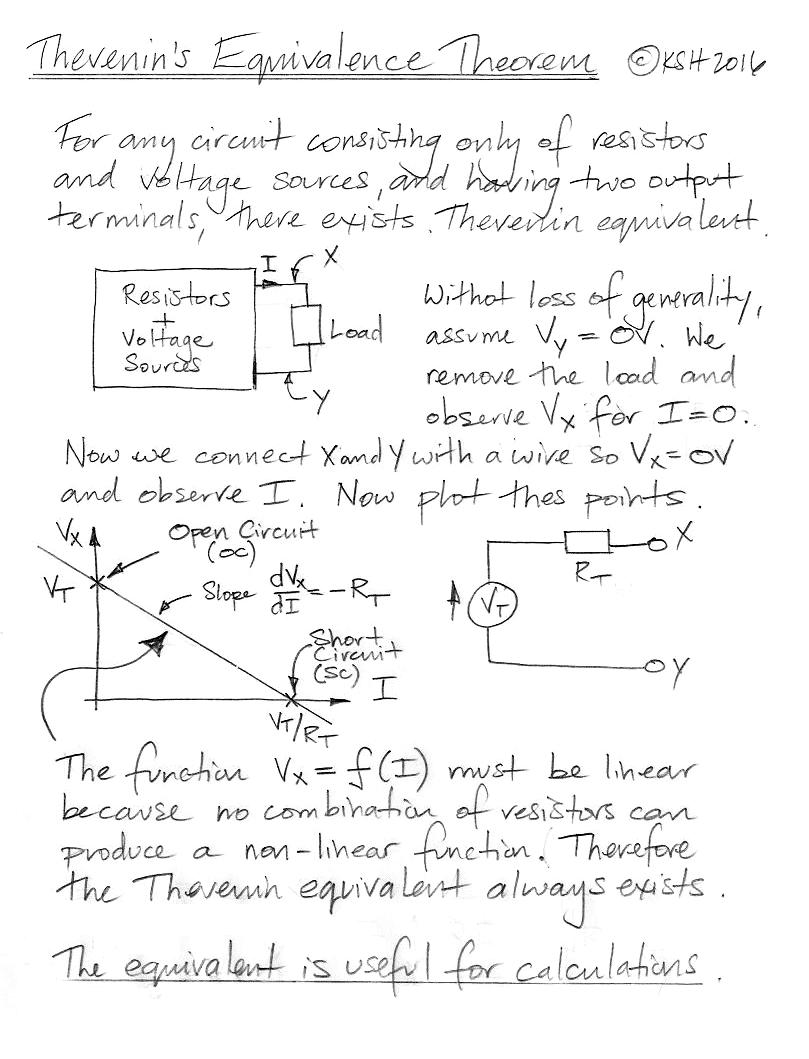 Thevenin's Equivalence Theorem ©KSH 2016
For any circuit consisting only of resistors
and voltage sources, and having two output
terminals, there exists . Thevenin equivalent.
I X
Resistors
+
Voltage
Sources
Load
Y
Withot loss of generality,
assume Vy = 0V. We
remove the load and
observe Vx for I=0.
Now we connect X and Y with a wire so Vx=0V
and observe I. Now plot thes points.
Vx
Open Circuit
(OC)
VT
Slope dVx/dI = -RT
Short
Circuit
(SC)
I
VT/RT
X
RT
VT
Y
The function Vx = f(I) must be linear
because no combination of resistors can
produce a non-linear function. Therefore
the Thevenin equivalent always exists.
The equivalent is useful for calculations.